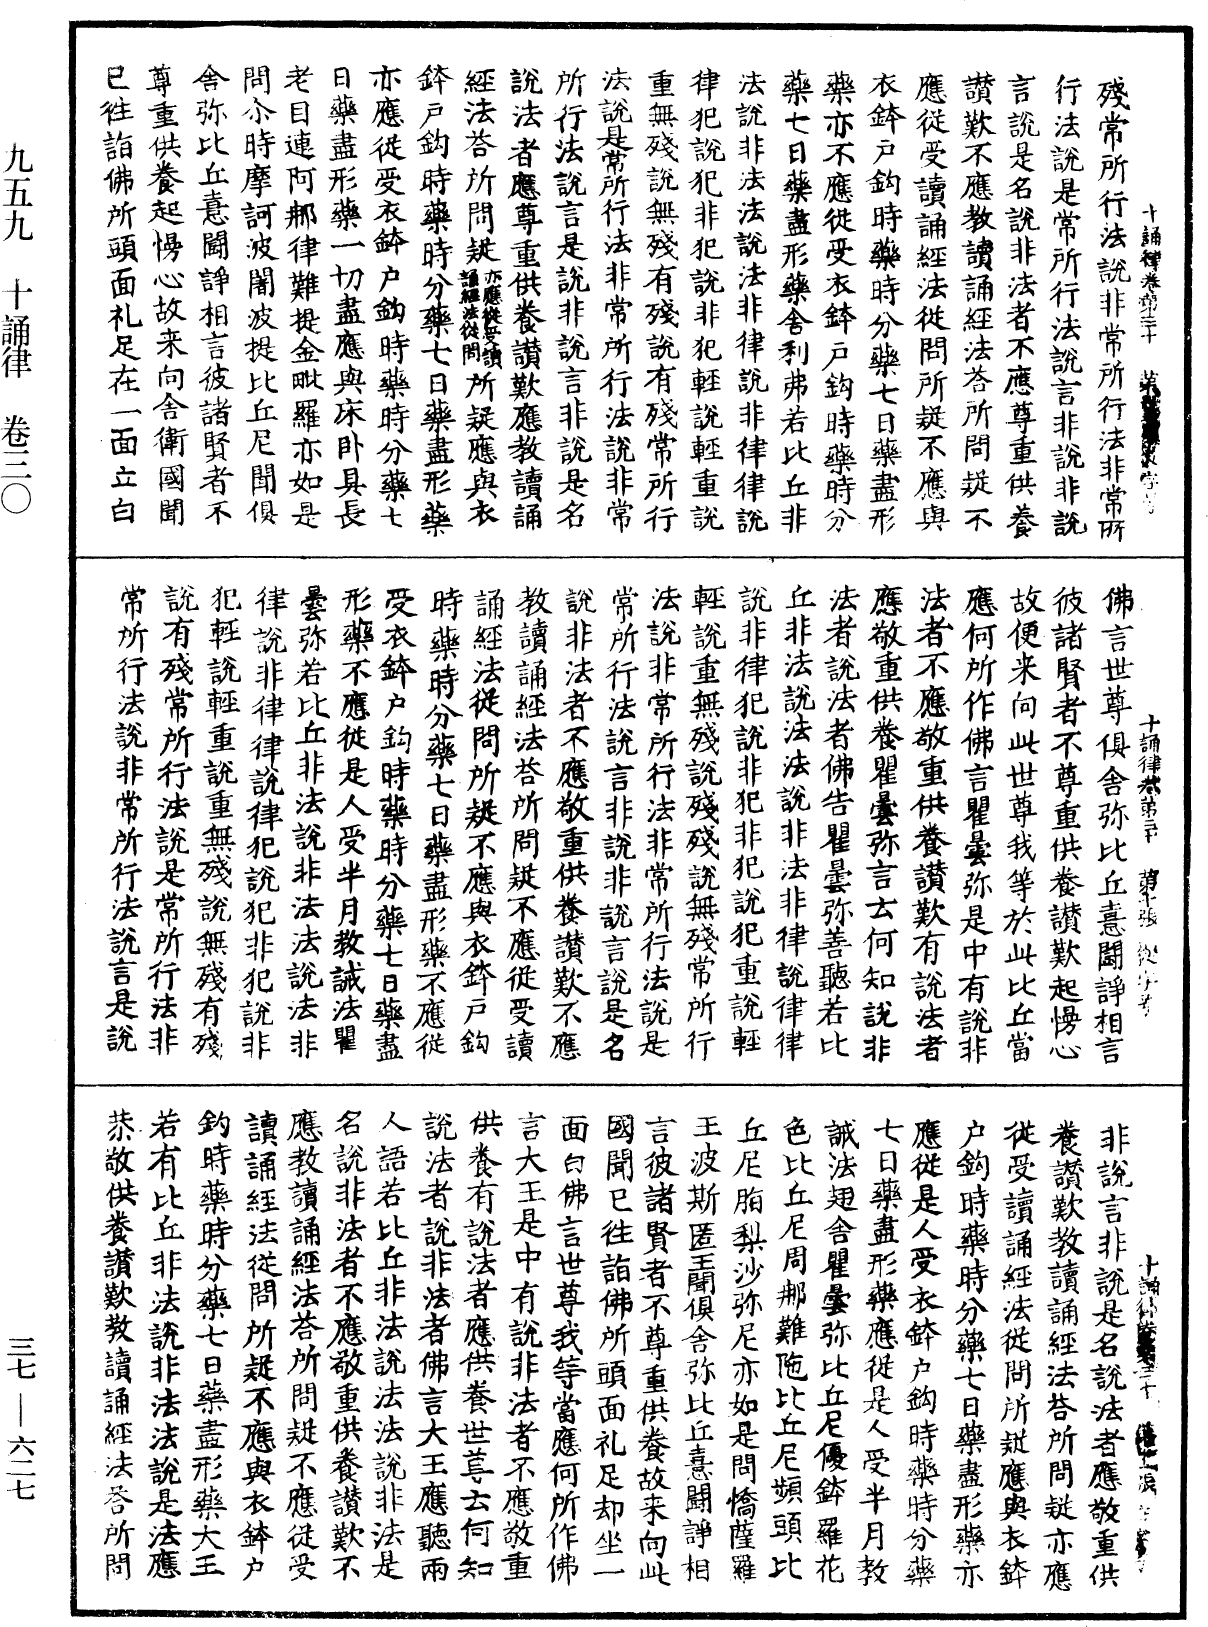 殘常所行法說非常所行法非常所
行法說是常所行法說言非說非說
言說是名說非法者不應尊重供養
讃歎不應教讀誦經法荅所問疑不
應從受讀誦經法從問所疑不應與
衣鉢戶鈎時藥時分藥七日藥盡形
藥亦不應從受衣鉢戶鈎時藥時分
藥七日藥盡形藥舍利弗若比丘非
法說非法法說法非律說非律律說
律犯說犯非犯說非犯輕說輕重說
重無殘說無殘有殘說有殘常所行
法說是常所行法非常所行法說非常
所行法說言是說非說言非說是名
說法者應尊重供養讃歎應教讀誦
經法荅所問疑亦應從受讀誦經法從問所疑應與衣
鉢戶鈎時藥時分藥七日藥盡形藥
亦應從受衣鉢戶鈎時藥時分藥七
日藥盡形藥一切盡應與床卧具長
老目連阿那律難提金毗羅亦如是
問尒時摩訶波闍波提比丘尼聞俱
舍弥比丘憙鬪諍相言彼諸賢者不
尊重供養起慢心故来向舍衛國聞
已往詣佛所頭面礼足在一面立白
佛言世尊俱舍弥比丘憙鬪諍相言
彼諸賢者不尊重供養讃歎起慢心
故便来向此世尊我等於此比丘當
應何所作佛言瞿曇弥是中有說非
法者不應敬重供養讃歎有說法者
應敬重供養瞿曇弥言云何知說非
法者說法者佛告瞿曇弥善聽若比
丘非法說法法說非法非律說律律
說非律犯說非犯非犯說犯重說輕
輕說重無殘說殘殘說無殘常所行
法說非常所行法非常所行法說是
常所行法說言非說非說言說是名
說非法者不應敬重供養讃歎不應
教讀誦經法荅所問疑不應從受讀
誦經法從問所疑不應與衣鉢戶鈎
時藥時分藥七日藥盡形藥不應從
受衣鉢戶鈎時藥時分藥七日藥盡
形藥不應從是人受半月教誡法瞿
曇弥若比丘非法說非法法說法非
律說非律律說律犯說犯非犯說非
犯輕說輕重說重無殘說無殘有殘
說有殘常所行法說是常所行法非
常所行法說非常所行法說言是說
非說言非說是名說法者應敬重供
養讃歎教讀誦經法荅所問疑亦應
從受讀誦經法從問所疑應與衣鉢
戶鈎時藥時分藥七日藥盡形藥亦
應從是人受衣鉢戶鈎時藥時分藥
七日藥盡形藥應從是人受半月教
誡法翅舍瞿曇弥比丘尼優鉢羅花
色比丘尼周那難陁比丘尼頞頭比
丘尼脂梨沙弥尼亦如是問憍薩羅
王波斯匿王聞俱舍弥比丘憙鬪諍相
言彼諸賢者不尊重供養故来向此
國聞已往詣佛所頭面礼足却坐一
面白佛言世尊我等當應何所作佛
言大王是中有說非法者不應敬重
供養有說法者應供養世尊云何知
說法者說非法者佛言大王應聽兩
人語若比丘非法說法法說非法是
名說非法者不應敬重供養讃歎不
應教讀誦經法荅所問疑不應從受
讀誦經法從問所疑不應與衣鉢戶
鈎時藥時分藥七日藥盡形藥大王
若有比丘非法說非法法說是法應
恭敬供養讃歎教讀誦經法荅所問
九五九 十誦律 卷三〇
三七—六二七